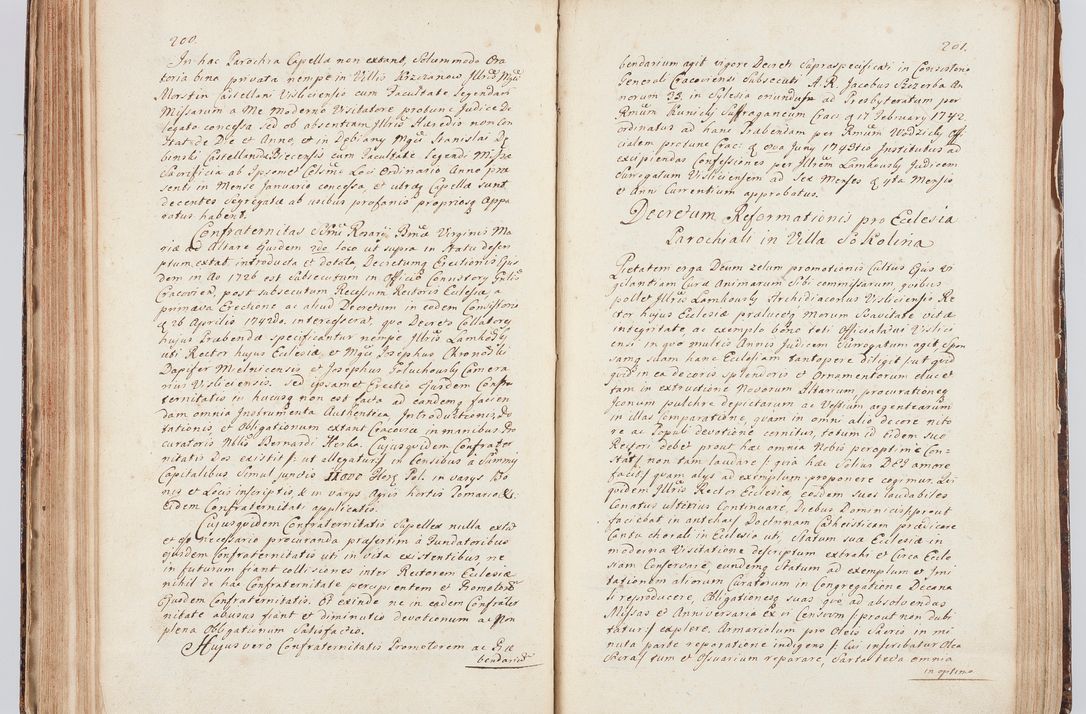 200.
In hac Parochia Capella non extant, Solummodo Ora
toria bina privata nempe in Villis Krzczanow Illris Mgci
Morstin Castellani Visliciensis cum Facultate legendarum
Missarum a Me moderno Visitatore protunc Judice De
legato concessa sed ob absentiam Illris Haredis non Con
stat de Die et Anno, et in Dobiany Mgci Stanislai De
binski Castellanida Biecensis cum Facultate legendi Missæ
Sacrificia ab Ipso Celsmo Loci Ordinario Anno præ
senti in Mense Januario concessa, et utraq Capella sunt
decentes segregatæ ab usibus profanis propriosq Appa
ratus habent.
Confraternitas SSmi Rosarii Bmæ Virginis Ma
riæ ad Altare ejusdem 2do loco ut supra in statu descri
ptum, extat introducta et dotata, Decretumq Erectionis Ejus
dem in Ao 1726 est subsecutum in Officio Consistory Gnlis
Cracovien, post subsecutum Recessum Rectoris Ecclesiæ, a
primæva Erectione ac aliud Decretum in eodem Consistorio
q 26 Aprilis 1742do. intercessera, quo Decreto Collatores
hujus Præbendæ specificantur nempe Illris Lamkosky
uti Rector hujus Ecclesiæ, et Mgci Josephus Chronoski
Dapifer Mielnicensis et Josephus Goluchowsky Camera
rius Visliciensis. Sed ipsamet Erectio Ejusdem Confra
ternitatis in hucusq non est facta ad eandemq facien
dam omnia Instrumenta Authentica Introductionis, Do
tationis et Obligationum extant Cracoviæ in manibus Pro
curatoris Nblis Bernardi Herka. Cujusquidem Confrater
nitatis Dos existit p ut allegatur in Censibus a Summis
Capitalibus Simul junctis 11000 flor Pol. in varys Bo
nis et Locis inscriptis, & in varys Agris hortis Pomario &c.
Eidem Confraternitati applicatis.
Cujusquidem Confraternitatis Supellex nulla extat
et eo necessario procuranda præsertim à Fundatoribus
ejusdem Confraternitatis uti in vita existentibus, ne
in futurum fiant collisiones inter Rectorem Ecclesiæ
nihil de hac Confraternitate percipientem et Promotorem
Ejusdem Confraternitatis. Et exinde ne in eadem Confrater
nitate abusus fiant et diminutio devotionum ac Non
plena Obligationum Satisfactio.
Hujus vero Confraternitatis Promotorem ac Præ
bendariū
201.
bendarium agit vigore Decreti supraspecificati in Consistorio
Generali Cracoviensi subsecuti A. R. Jacobus Szczerba An
norum 33 in Sylesia oriundus ad Presbyteratum per
Rmum Kunicky Suffraganeum Crac: q 17 February 1742
ordinatus ad hanc Præbendam per Rmum Wodzicky Offi
cialem protunc Crac: q 8va Juny 1742tis Institutus ad
excipiendas Confessiones per Illrem Lamkowsky Judicem
Surrogatum Visliciensem ad Sex Menses q 4ta Mensis
et Anni Currentium approbatus.
Decretum Reformationis pro Ecclesia
Parochiali in Villa Sokolina
Pietatem erga Deum zelum promotionis Cultus Ejus vi
gilantiam Curæ Animarum Sibi commissarum, quibus
pollet Illris Lamkowsky Archidiaconus Visliciensis Re
ctor hujus Ecclesiæ prælucetq Morum Suavitate vitæ
integritate, ac exemplo bono toti Officialatui Vislici
ensi in quo multis Annis Judicem Surrogatum agit, Spon
samq suam hanc Ecclesiam tantopere diligit sut quid
quid in ea decoris splendoris et Ornamentorum eluceat
tam in extructione Novorum Altarium, procurationeq
Iconum pulchre depictarum ac Vestium argentearum
in illas Comparatione, quàm in omni alio decore nito
re ac Populi devotione cernitur, totum id eidem suo
Rectori debet prout hæc omnia Nobis peroptime Con
stat, non tam laudare p quia hæc Solius DEI amore
facit quàm alys ad exemplum proponere cogimur. Qui
quidem Illris Rector Ecclesiæ, eosdem suos laudabiles
Conatus ulterius Continuare, Diebus Dominicis prout
faciebat in antehac Doctrinam Catheisticam prædicare
Cantu chorali in Ecclesia uti, Statum suæ Ecclesiæ in
moderna Visitatione descriptum extrahi et Circa Eccle
siam Conservare, eundemq Statum ad exemplum et Imi
tationem aliorum Curatorum in Congregatione Decana
li reproducere, Obligationesq suas quo ad absolvendas
Missas et Anniversaria ex vi Censuum prout non dubi
tatur explere. Armariolum pro Oleis Sacris in mi
nuta parte reparatione indigens p Cui inscribatur Olea
Sacra tum et Ossuarium reparare, Sarta tecta omnia
in optimo